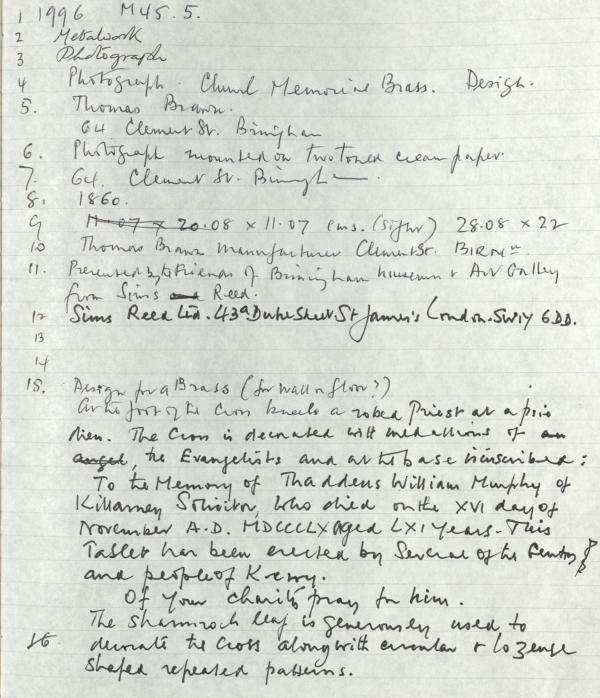 1 1996 M45.5.
2 Metalwork
3 Photograph
4 Photograph. Church Memorial Brass. Design.
5. Thomas Brawn.
64 Clement St. Birmingham
6. Photograph mounted on two toned cream paper.
7. 64. Clement St. Birmingh
8. 1860.
9 11.07 x 20.08 x 11.07 cms. (sight) 28.08 x 22
10 Thomas Brawn Manufacturer Clement St. BIRMM
11. Presented by the Friends of Birmingham Museum & Art Gallery
from Sims and Reed.
12 Sims Reed Ltd. 43a Duke Street St James's London. SW1Y 6DD.
13
14
15. Design for a Brass (for wall or floor?)
At the foot of the Cross kneels a robed Priest at a prie
dieu. The Cross is decorated with medallions of an
angel, the Evangelists and at the base is inscribed:
To the Memory of Thaddeus William Murphy of
Killarney Solicitor, who died on the XVI day of
November A.D. MDCCCLX Aged LXI Years. This
Tablet has been erected by Several of the Gentry
and people of Kerry.
Of Your Charity pray for him.
The Shamrock leaf is generously used to
16 decorate the Cross along with circular & lozenge
shaped repeated patterns.